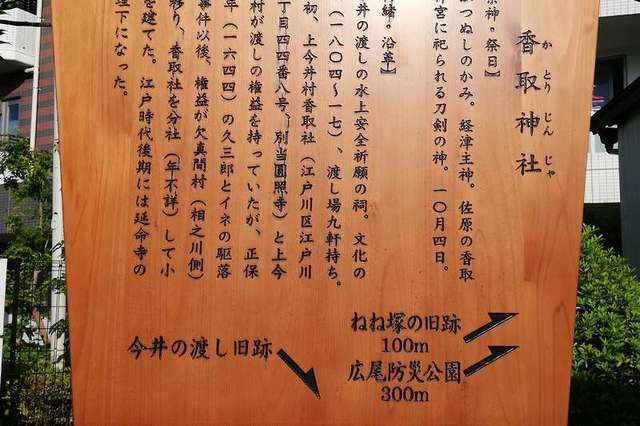 香取神社
かとりじんじゃ
祭神・祭日】
つぬしのかみ。経津主神。佐原の香取
神宮に祀られる刀剣の神。一〇月四日。
緒・沿革】
井の渡しの水上安全祈願の祠。文化の
(一八〇四〜一七)、渡し場九軒持ち。
初、上今井村香取社(江戸川区江戸川
丁目四四番八号、別当圓照寺)と上今
村が渡しの権益を持っていたが、正保
年(一六四四)の久三郎とイネの駆落
事件以後、権益が欠真間村(相之川側)
移り、香取社を分社(年不詳)して小
を建てた。江戸時代後期には延命寺の
下になった。
ねね塚の旧跡
100m
広尾防災公園
300m
今井の渡し旧跡